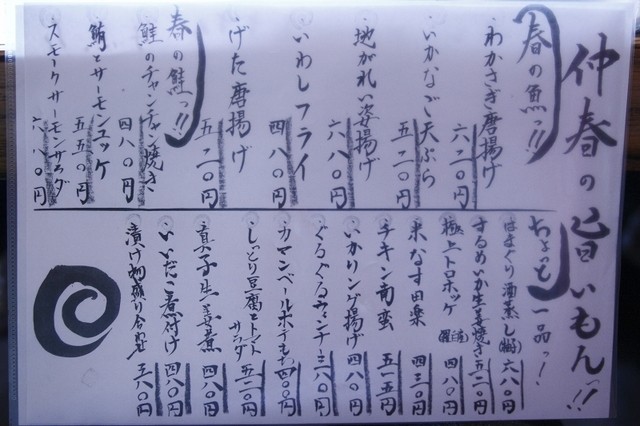 仲春の旨いもんっ!!
春の魚っ!!
・わかさぎ唐揚げ 六二〇円
・いかなご天ぷら 五二〇円
・地がれい姿揚げ 六八〇円
・いわしフライ 四八〇円
・げた唐揚げ 五二〇円
春の鮭っ!!
・鮭のチャンチャン焼き 四八〇円
・鮪とサーモンユッケ 五五〇円
・スモークサーモンサラダ 六八〇円
ちょっと一品っ!
・はまぐり酒蒸し 六八〇円
・するめいか生姜焼き 五二〇円
・極上トロホッケ 四八〇円
・米なす田楽 四三〇円
・チキン南蛮 五一五円
・いかリング揚げ 四八〇円
・ぐるぐるウィンナー 三八〇円
・カマンベールポテもち 四〇〇円
・しっとり豆腐とトマトサラダ 五二〇円
・真子生姜煮 四八〇円
・いいだこ煮付け 四八〇円
・漬け物盛り合せ 三八〇円